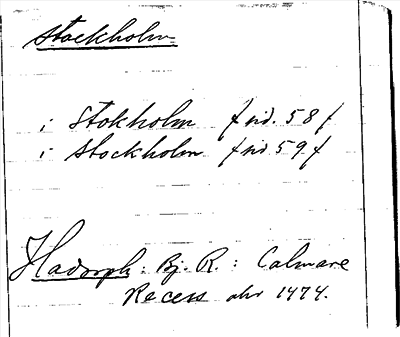 Stockholm
i Stokholm f sid. 58 f
i Stockholm f sid 59 f
Hadorph: Bj. R.: Calmare
Recess ahr 1474.